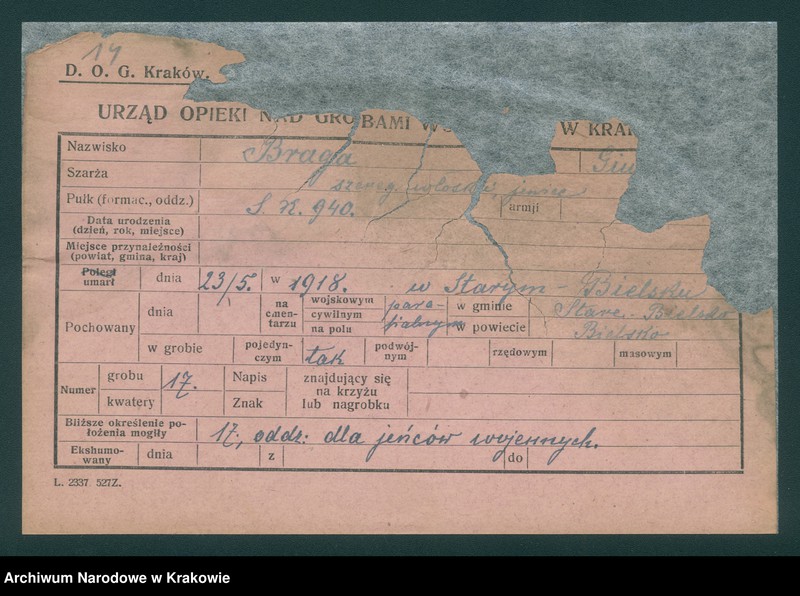 14
D. O. G. Kraków.
URZĄD OPIEKI NAD GROBAMI W KRA
Nazwisko Braga Giu
Szarża szereg. włoski, jeniec
Pułk (formac., oddz.) S. K. 940. armji
Data urodzenia
(dzień, rok, miejsce)
Miejsce przynależności
(powiat, gmina, kraj)
Poległ
umarł dnia 23/5. w 1918. w Starym-Bielsku
Pochowany dnia na cmen-tarzu wojskowym cywilnym na polu para-fialnym w gminie Stare-Bielsko
w powiecie Bielsko
w grobie pojedyn-czym tak podwój-nym rzędowym masowym
Numer grobu 17. Napis znajdujący się
kwatery Znak na krzyżu
lub nagrobku
Bliższe określenie po-
łożenia mogiły 17, oddz: dla jeńców wojennych.
Ekshumo-
wany dnia z do
L. 2337 527Z.
Archiwum Narodowe w Krakowie